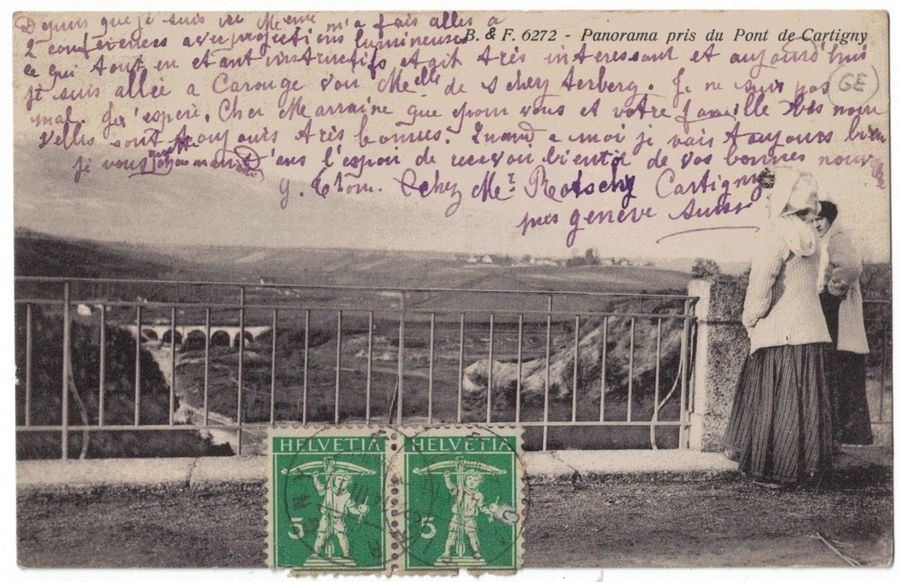 Depuis que je suis ici Meme m'a fais allés a
2 conférences avec projections lumineuses
B. & F. 6272 - Panorama pris du Pont de Cartigny
ce qui tout en etant instructifs etait très interessant et aujourd'hui
je suis allée a Carouge Melle de Je ne suis pas
GE
mal. J'espère, Cher Marraine que pour vous et votre famille vos nou
velles sont toujours très bonnes. Quand a moi je vais toujours bien
je vous D'ans l'espoir de recevoir bientôt de vos bonnes nouvelles
chez Mr Cartigny
près genève Suisse
HELVETIA HELVETIA
5 5